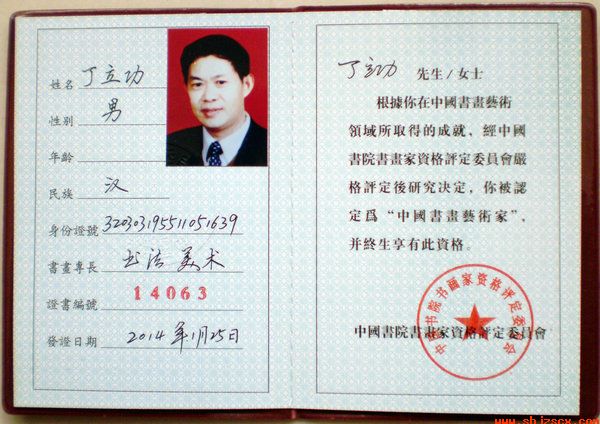 姓名 丁立功
性别 男
年齡
民族 汉
身份證號 320303195511051639
書畫專長 书法 美术
證書編號 14063
發證日期 2014年1月25日
丁立功 先生/女士
根據你在中國書畫藝術
領域所取得的成就，經中國
書院書畫家資格評定委員會嚴
格評定後研究決定，你被認
定爲“中國書畫藝術家”，
并終生享有此資格。
中國書院書畫家資格評定委員會
中國书院书画家资格评定委员会
www.shjzscx.com